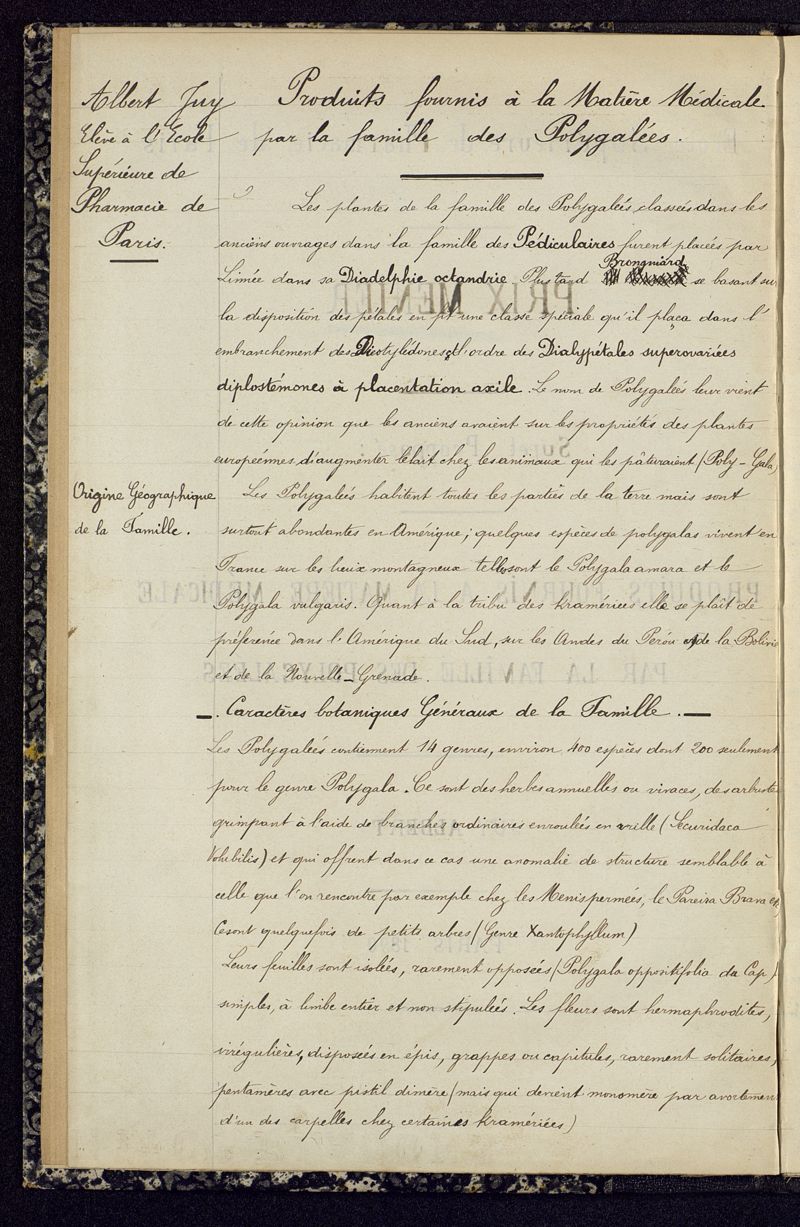 Albert Juy
Elève à l'Ecole
Supérieure de
Pharmacie de
Paris.
Produits fournis à la Matière Médicale
par la famille des Polygalées.
Les plantes de la famille des Polygaleés, classées dans les
anciens ouvrages dans la famille des Pédiculaires furent placées par
Linnée dans sa Diadelphie octandrie. Plus tard Brongniard se basant sur
la disposition des pétales en fit une classe spéciale qu'il plaça dans l'
embranchement des Dicotylédones et l'ordre des Dialypétales superovariées
diplostémones à placentation axile. Le nom de Polygaleés leur vient
de cette opinion que les anciens avaient sur les propriétés des plantes
européennes d'augmenter le lait chez les animaux qui les pâturaient (Poly-Gala)
Origine Géographique
de la Famille.
Les Polygaleés habitent toutes les parties de la terre mais sont
surtout abondantes en Amérique; quelques espèces de polygalas vivent en
France sur les lieux montagneux telles sont le Polygala amara et le
Polygala vulgaris. Quant à la tribu des Kramériees elle se plaît de
préference dans l'Amérique du Sud, sur les Andes du Pérou et de la Bolivie
et de la Nouvelle-Grenade.
_. Caractères botaniques Généraux de la Famille._
Les Polygaleés contiennent 14 genres, environ 400 espèces dont 200 seulement
pour le genre Polygala. Ce sont des herbes annuelles ou vivaces, des arbustes
grimpant à l'aide de branches ordinaires enroulées en vrille (Securidaca
Volubilis) et qui offrent dans ce cas une anomalie de structure semblable à
celle que l'on rencontre par exemple chez les Menispermées, le Pareira Brava etc.
Ce sont quelquefois de petits arbres (Genre Xantophyllum)
Leurs feuilles sont isolées, rarement opposées (Polygala oppositifolia du Cap)
simples, à limbe entier et non stipulées. Les fleurs sont hermaphrodites,
irrégulières, disposées en épis, grappes ou capitules, rarement solitaires,
pentamères avec pistil dimère (mais qui devient monomère par avortement
d'un des carpelles chez certaines Kramériées)